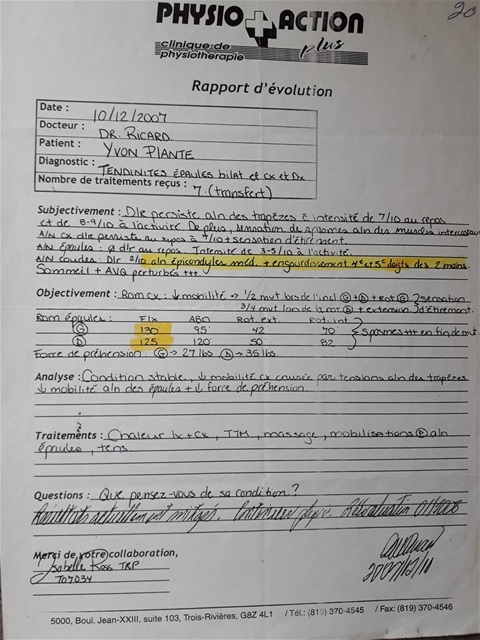 20
PHYSIO ACTION
plus
clinique de
physiothérapie
Rapport d'évolution
Date : 10/12/2007
Docteur : DR. RICARD
Patient : YVON PLANTE
Diagnostic : TENDINITES ÉPAULES BILAT et CX et Dx
Nombre de traitements reçus : 7 (transfert)
Subjectivement : Dlr persiste aln des trapèzes à intensité de 7/10 au repos
et de 8-9/10 à l'activité. De plus, sensation de spasmes aln des muscles intercostaux
A/N CX dlr persiste au repos à 7/10 + sensation d'étirement.
A/N épaules : Ø dlr au repos. Intensité de 3-5/10 à l'activité.
A/N coudes : Dlr 2/10 aln épicondyles méd. + engourdissement 4e et 5e doigts des 2 mains.
Sommeil + AVQ perturbés +++
Objectivement : Rom cx : ↓ mobilité → 1/2 mvt lors de l'incl G + D + rot G } sensation
3/4 mvt lors de la rot D + extension } d'étirement.
Rom épaules : Flx ABD Rot. ext. Rot. int.
G 130 95 42 70 } Spasmes +++ en fin de mvt
D 125 120 50 82
Force de préhension : G → 27 lbs D → 35 lbs
Analyse : Condition stable, ↓ mobilité cx causée par tensions aln des trapèzes
↓ mobilité aln des épaules + ↓ force de préhension.
Traitements : Chaleur lx + cx, TTM, massage, mobilisations aln
épaules, tens
Questions : Que pensez-vous de sa condition ?
Réévaluation
Merci de votre collaboration,
Isabelle Ross TRP
T07034
2007/12/10
5000, Boul. Jean-XXIII, suite 103, Trois-Rivières, G8Z 4L1 / Tél.: (819) 370-4545 / Fax: (819) 370-4546